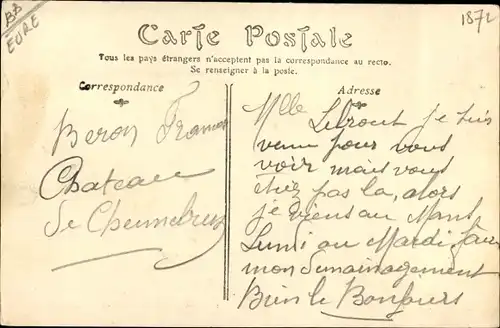 BB
EURE
1872
Carte Postale
Tous les pays étrangers n'acceptent pas la correspondance au recto.
Se renseigner à la poste.
Correspondance
Adresse
Beron
Chateau
de
Mlle Lebrout je suis
venu pour vous
voir mais vous
étiez pas la, alors
je viens au
Lundi ou Mardi faire
mon demainagement
Bien le Bonjours